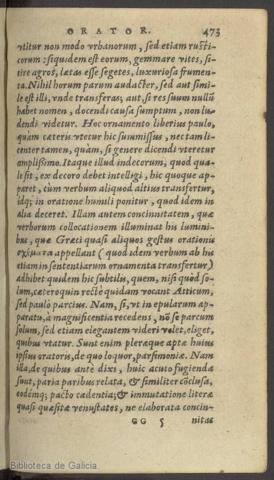 ORATOR. 473
vtitur non modo vrbanorum, sed etiam rusti-
corum: siquidem est eorum, gemmare vites, si-
tire agros, lætas esse segetes, luxuriosa frumen-
ta. Nihil horum parum audacter, sed aut simi-
le est illi, vnde transferas, aut, si res suum nullũ
habet nomen, docendi causa sumptum, non lu-
dendi videtur. Hoc ornamento liberius paulo,
quàm ceteris vtetur hic summissus, nec tam li-
center tamen, quàm, si genere dicendi vteretur
amplissimo. Itaque illud indecorum, quod qua-
le sit, ex decoro debet intellegi, hic quoque ap-
paret, cùm verbum aliquod altius transfertur,
idq; in oratione humili ponitur, quod idem in
alia deceret. Illam autem concinnitatem, quæ
verborum collocationem illuminat his lumini-
bus, quæ Græci quasi aliquos gestus orationis
σχήματα appellant (quod idem verbum ab his
etiam in sententiarum ornamenta transfertur)
adhibet quidem hic subtilis, quem, nisi quòd so-
lum, cæteroquin rectè quidam vocant Atticum,
sed paulò parcius. Nam, si, vt in epularum ap-
paratu, à magnificentia recedens, nõ se parcum
solum, sed etiam elegantem videri volet, eliget,
quibus vtatur. Sunt enim pleræque aptæ huius
ipsius oratoris, de quo loquor, parsimoniæ. Nam
illa, de quibus antè dixi, huic acuto fugienda
sunt, paria paribus relata, & similiter cõclusa,
eodemq; pacto cadentia; & immutatione literæ
quasi quæsitæ venustates, ne elaborata concin-
GG 5 nitas
Biblioteca de Galicia